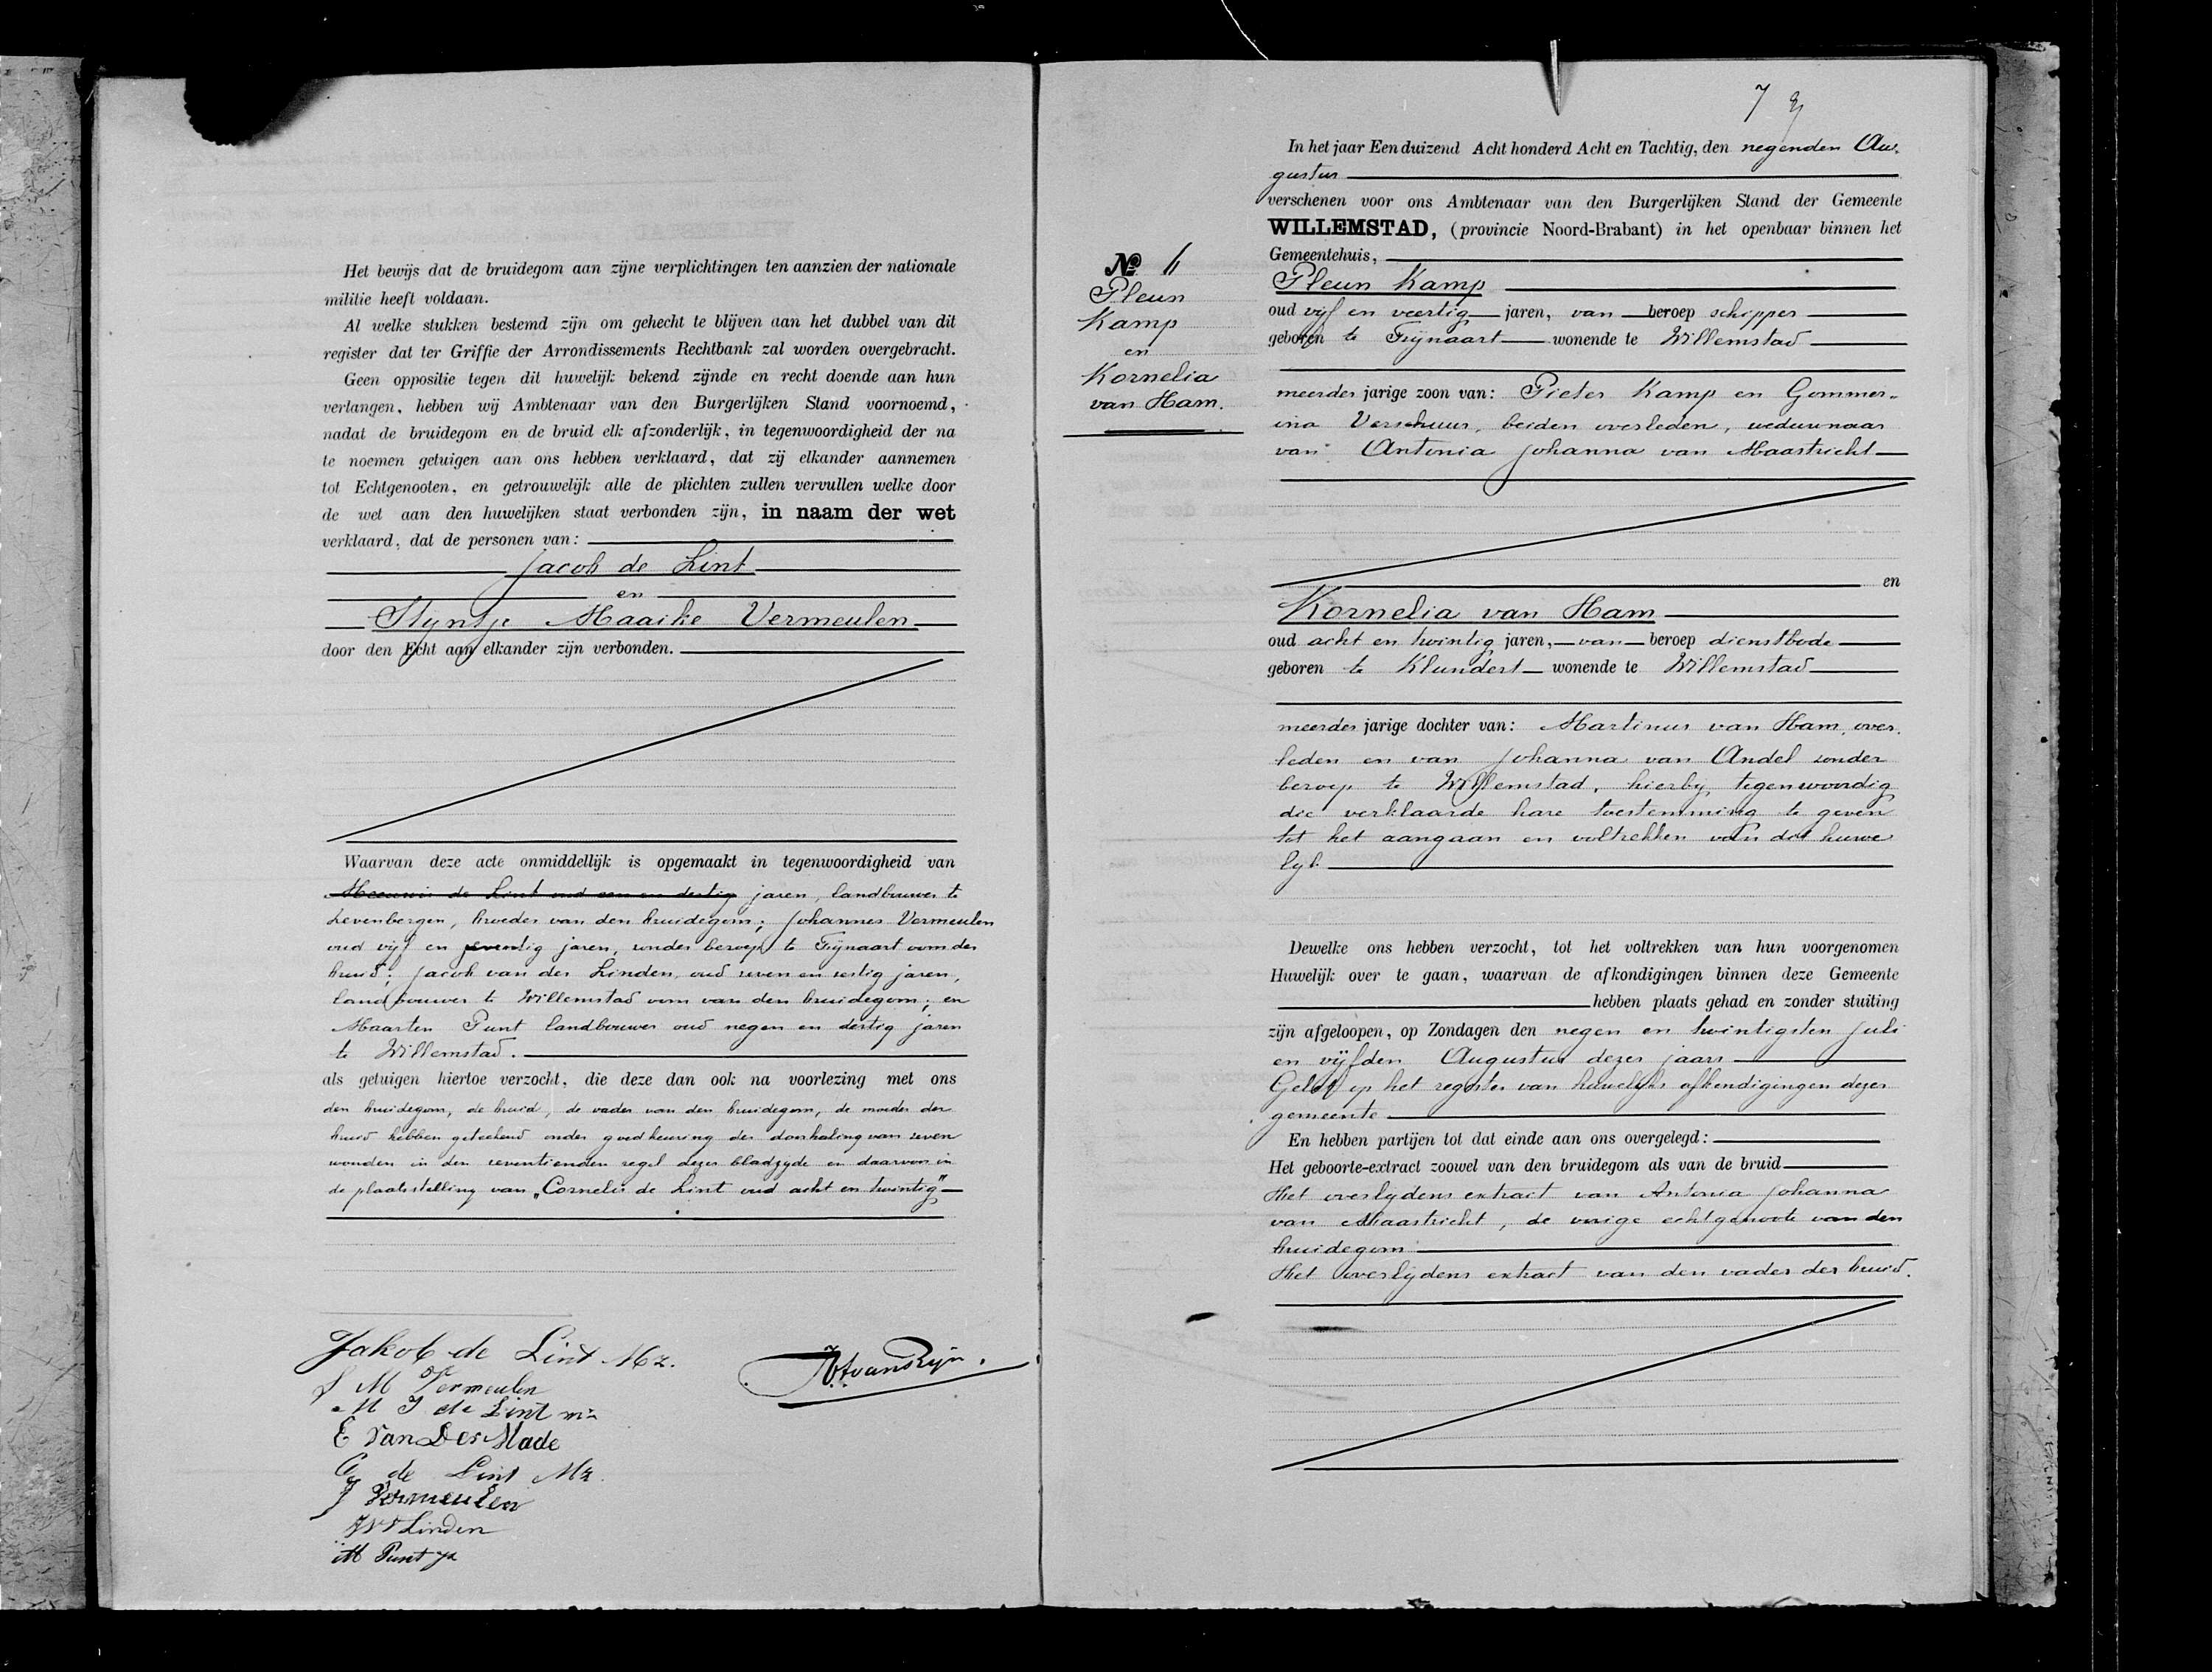 Het bewijs dat de bruidegom aan zijne verplichtingen ten aanzien der nationale
militie heeft voldaan.
Al welke stukken bestemd zijn om gehecht te blijven aan het dubbel van dit
register dat ter Griffie der Arrondissements Rechtbank zal worden overgebracht.
Geen oppositie tegen dit huwelijk bekend zijnde en recht doende aan hun
verlangen, hebben wij Ambtenaar van den Burgerlijken Stand voornoemd,
nadat de bruidegom en de bruid elk afzonderlijk, in tegenwoordigheid der na
te noemen getuigen aan ons hebben verklaard, dat zij elkander aannemen
tot Echtgenooten, en getrouwelijk alle de plichten zullen vervullen welke door
de wet aan den huwelijken staat verbonden zijn, in naam der wet
verklaard, dat de personen van:
Jacob de Lint
en
Styntje Maaike Vermeulen
door den Echt aan elkander zijn verbonden.
Waarvan deze acte onmiddellijk is opgemaakt in tegenwoordigheid van
Meeuwis de Lint oud een en dertig jaren, landbouwer te
Zevenbergen, broeder van den bruidegom; Johannes Vermeulen
oud vyf en zeventig jaren, zonder beroep te Fijnaart oom der
bruid; Jacob van der Linden, oud zeven en zestig jaren,
landbouwer te Willemstad oom van den bruidegom; en
Maarten Punt landbouwer oud negen en dertig jaren
te Willemstad.
als getuigen hiertoe verzocht, die deze dan ook na voorlezing met ons
den bruidegom, de bruid, de vader van den bruidegom, de moeder der
bruid hebben geteekend onder goedkeuring der doorhaling van zeven
woorden in den zeventienden regel dezer bladzyde en daarvoor in
de plaatsstelling van „Cornelis de Lint oud acht en twintig"
Jakob de Lint Mz.
S M Vermeulen
M J de Lint
E van Der Made
C de Lint Mz.
J Vermeulen
J v d Linden
M Punt
van Rijn.
7
In het jaar Een duizend Acht honderd Acht en Tachtig, den negenden Au-
gustus
verschenen voor ons Ambtenaar van den Burgerlijken Stand der Gemeente
WILLEMSTAD, (provincie Noord-Brabant) in het openbaar binnen het
Gemeentehuis,
No 11
Pleun
Kamp
en
Kornelia
van Ham.
Pleun Kamp
oud vyf en veertig jaren, van beroep schipper
geboren te Fijnaart wonende te Willemstad
meerder jarige zoon van: Pieter Kamp en Gommer-
ina Verschuur, beiden overleden, weduwnaar
van Antonia Johanna van Maastricht
en
Kornelia van Ham
oud acht en twintig jaren, van beroep dienstbode
geboren te Klundert wonende te Willemstad
meerder jarige dochter van: Martinus van Ham, over-
leden en van Johanna van Andel zonder
beroep te Willemstad, hierby tegenwoordig
die verklaarde hare toestemming te geven
tot het aangaan en voltrekken van dit huwe
lyk
Dewelke ons hebben verzocht, tot het voltrekken van hun voorgenomen
Huwelijk over te gaan, waarvan de afkondigingen binnen deze Gemeente
hebben plaats gehad en zonder stuiting
zijn afgeloopen, op Zondagen den negen en twintigsten Juli
en vyfden Augustus dezes jaars
Gelet op het register van huwelyks afkondigingen dezer
gemeente
En hebben partijen tot dat einde aan ons overgelegd:
Het geboorte-extract zoowel van den bruidegom als van de bruid
Het overlydens extract van Antonia Johanna
van Maastricht, de vorige echtgenoote van den
bruidegom
Het overlydens extract van den vader der bruid.